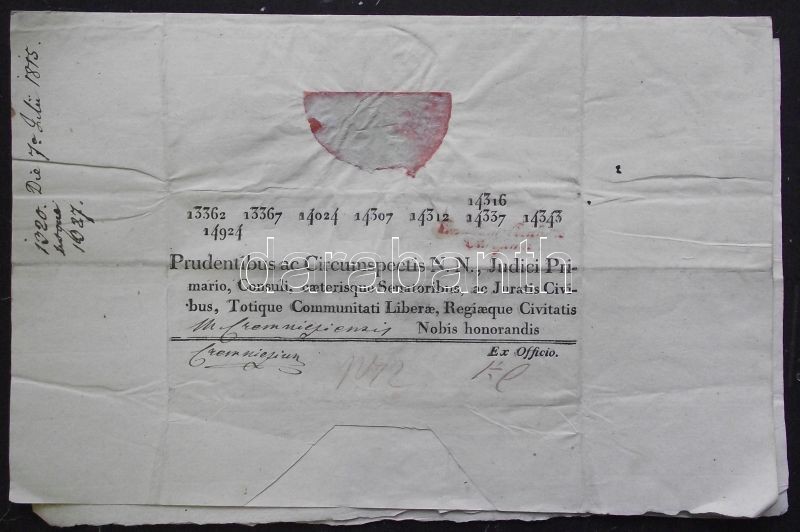 Die 7a Julii 1815.
1320. usque
1627.
14316
13362 13367 14024 14307 14312 14337 14343
14924
Prudentibus ac Circumspectis N. N., Judici Pri-
mario, Consuli, cæterisque Senatoribus, ac Juratis Civi-
bus, Totique Communitati Liberæ, Regiæque Civitatis
Cremniziensis Nobis honorandis
Ex Officio.
darabanth